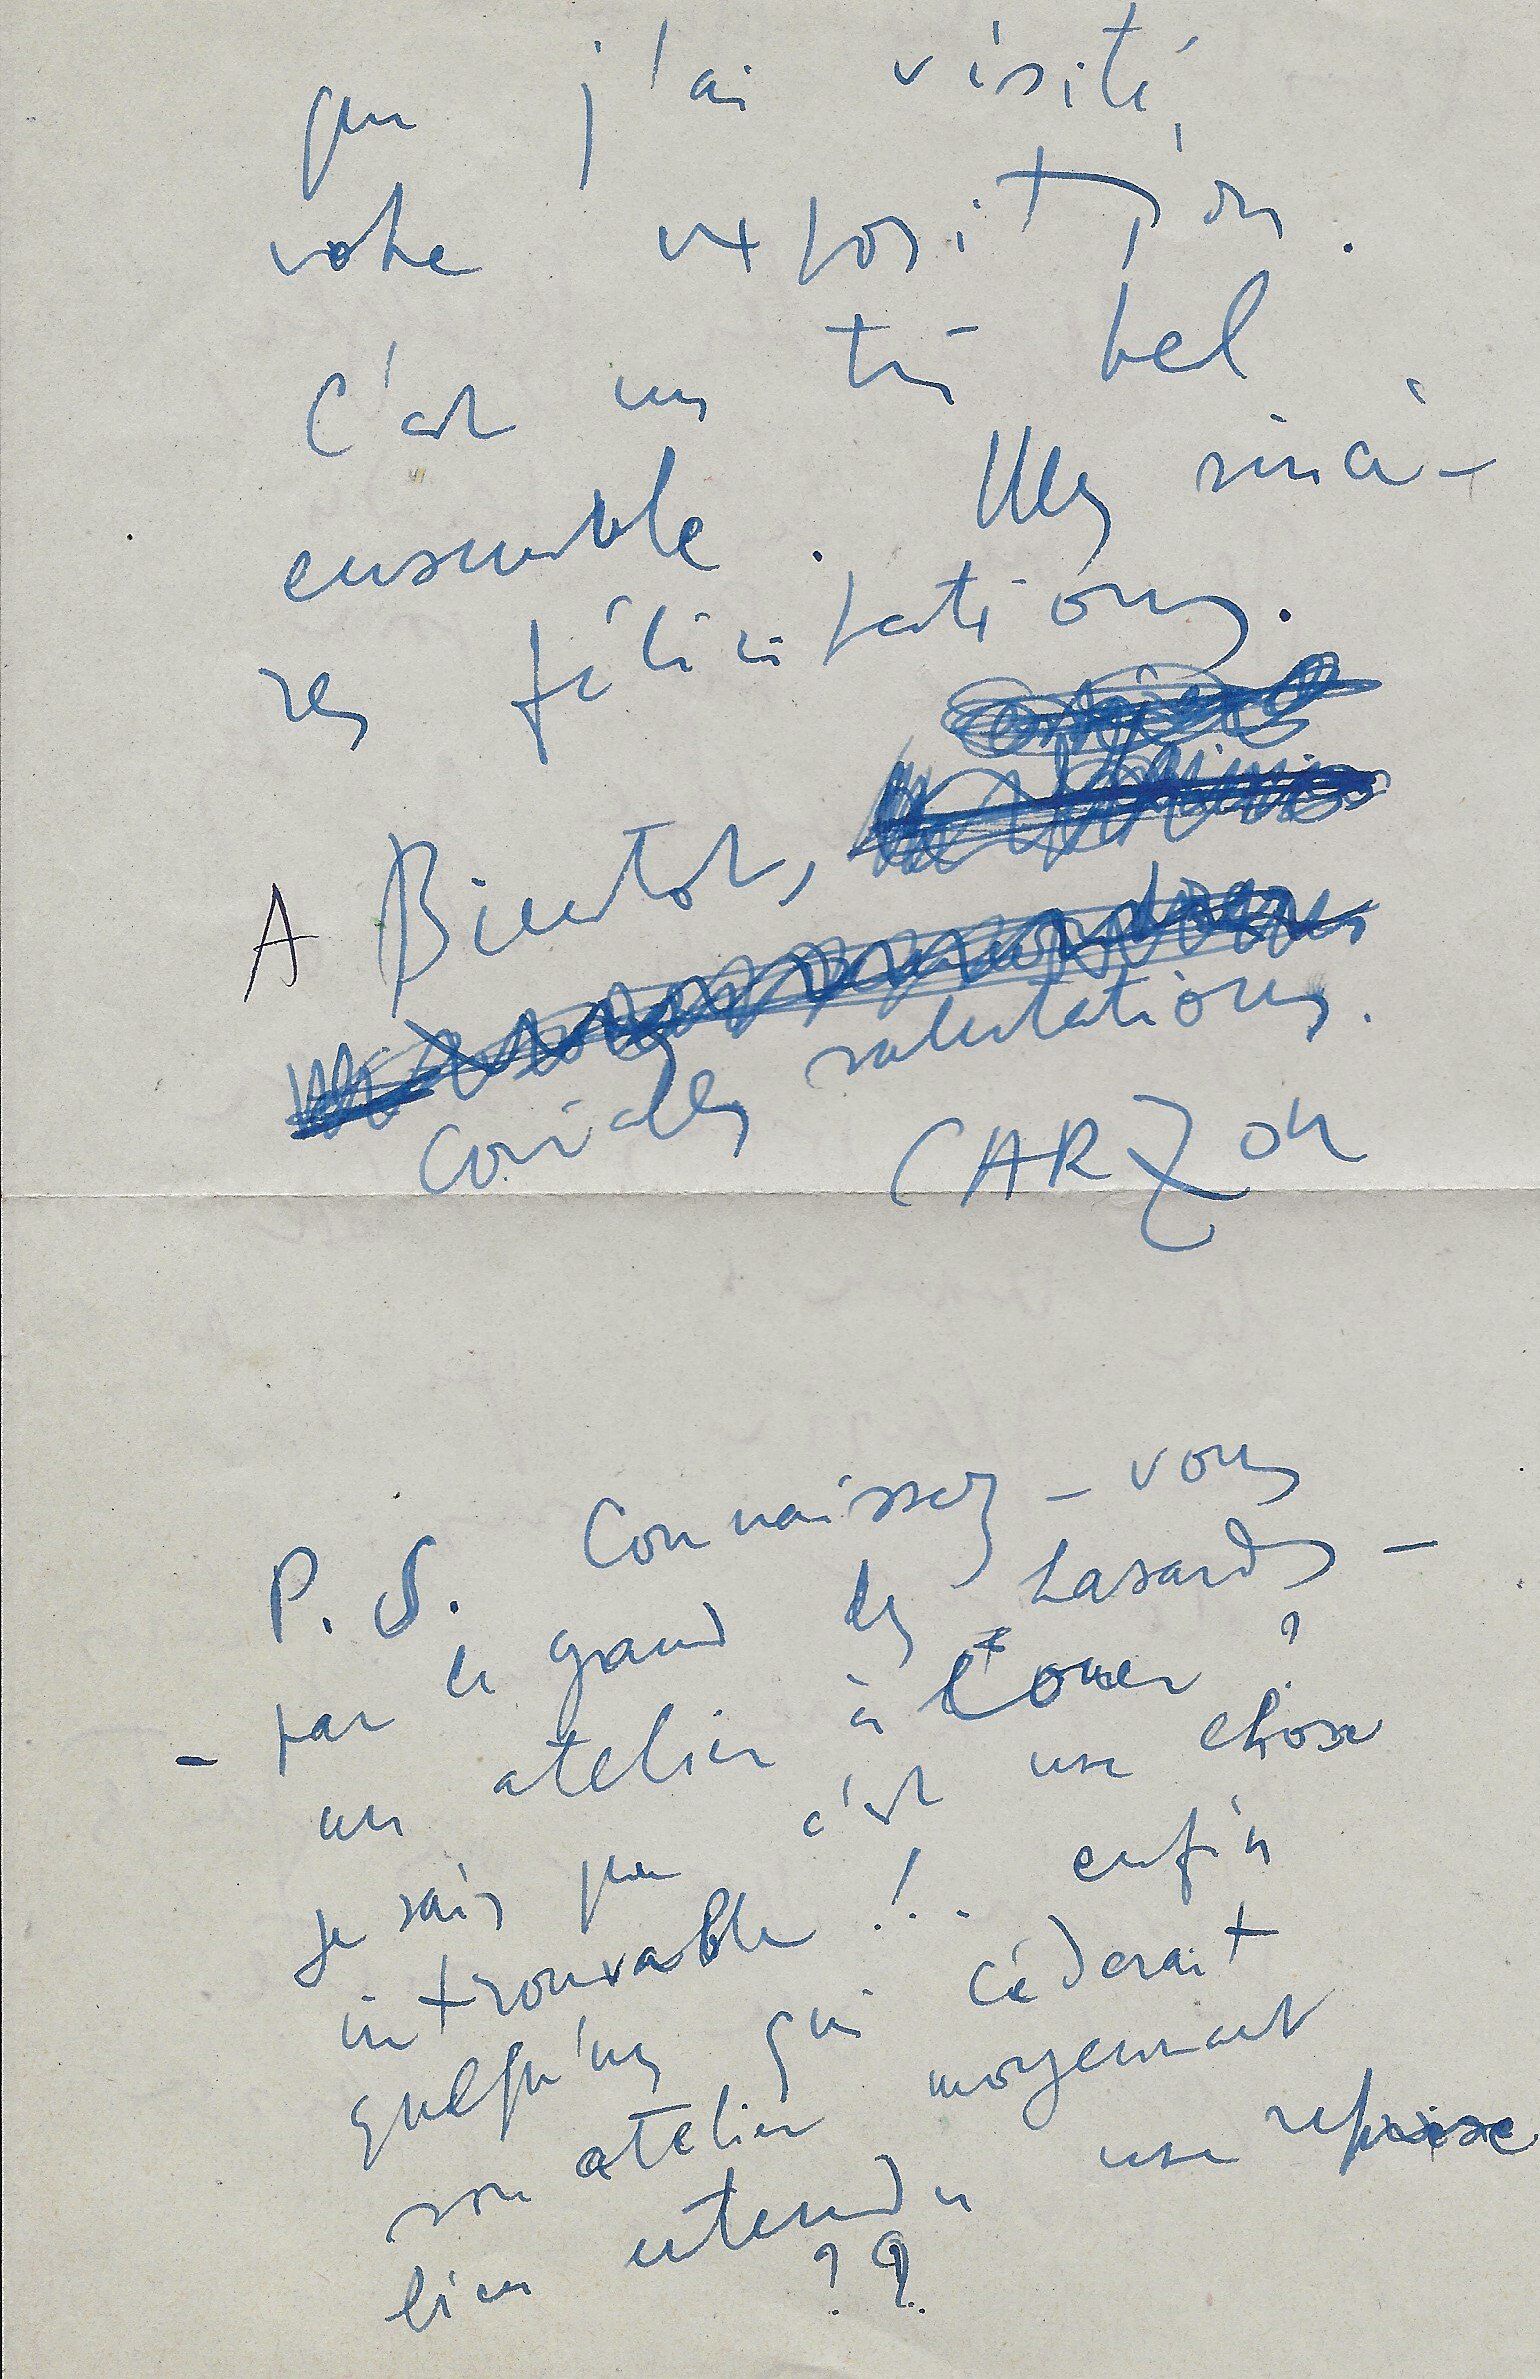 que j'ai visité
votre exposition.
C'est un très bel
ensemble. Mes sincè-
res félicitations.
A Bientôt,
Cordiales salutations.
CARZOU
P. S. Connaissez-vous
- par le grand des hasards -
un atelier à louer ?
Je sais que c'est une chose
introuvable !.. enfin
quelqu'un qui céderait
son atelier moyennant
bien entendu une reprise
??